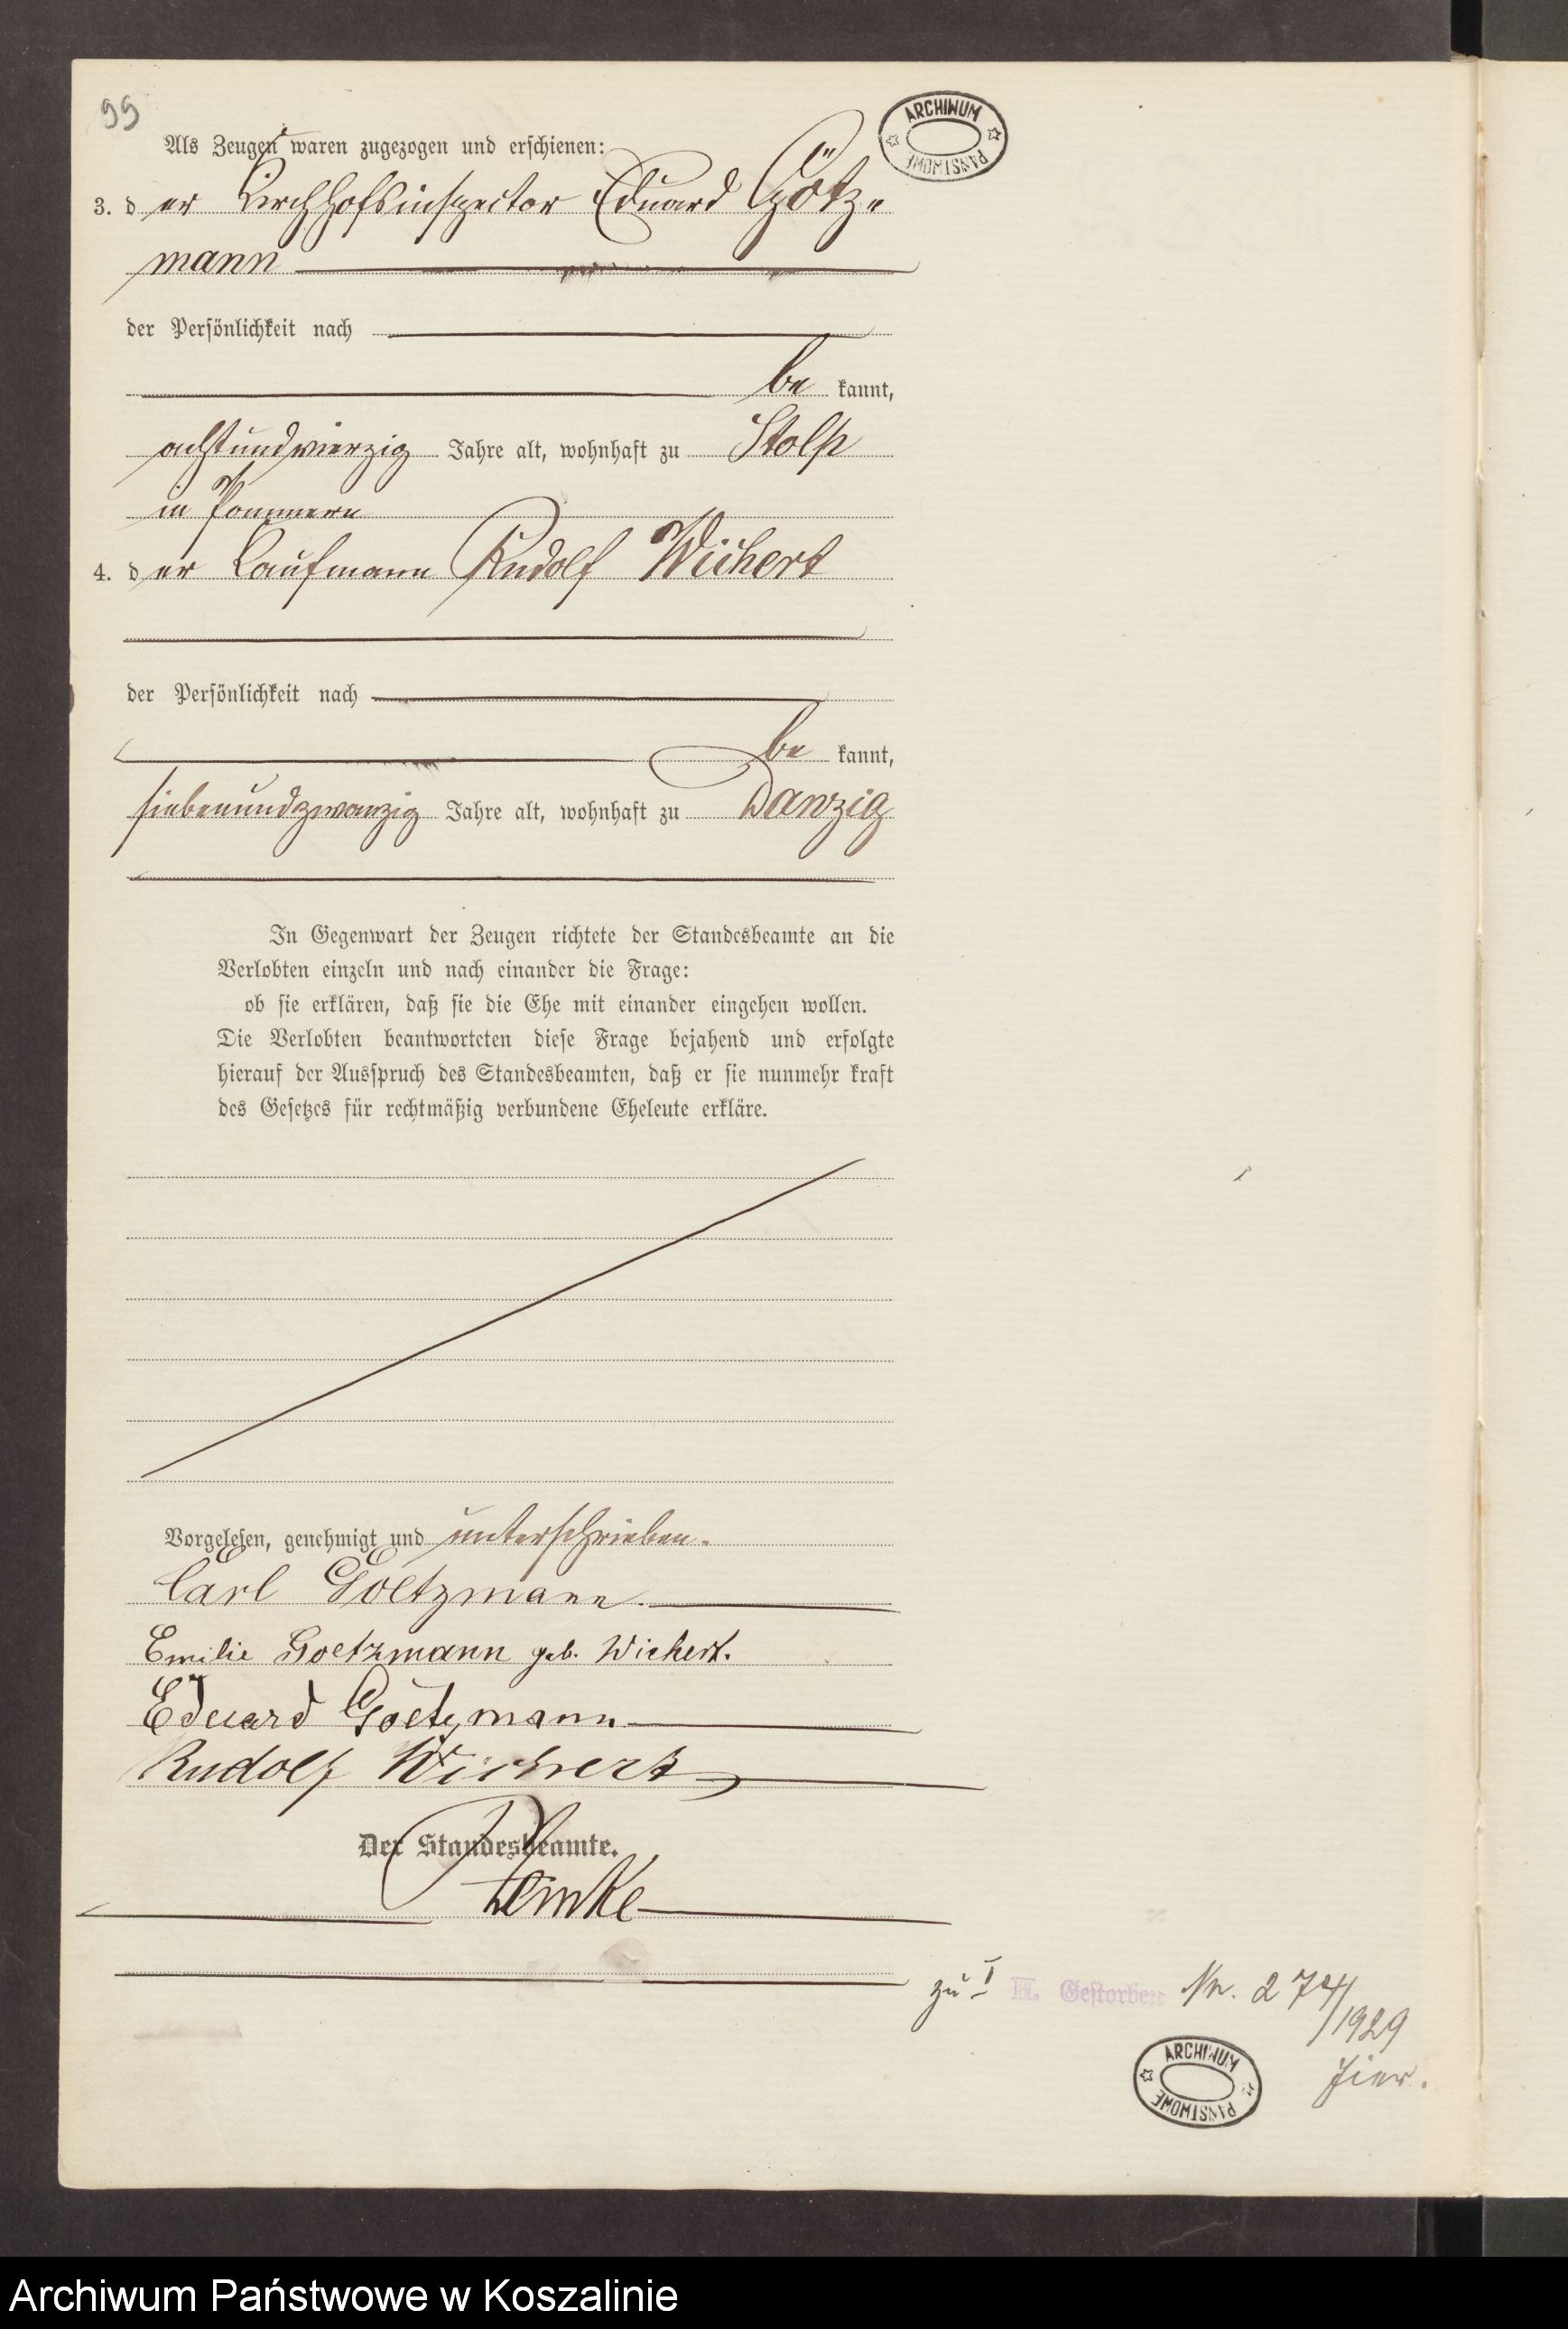 99
ARCHIWUM PAŃSTWOWE
Als Zeugen waren zugezogen und erschienen:
3. d er Kirchhofsinspector Eduard Götz-
mann
der Persönlichkeit nach
be kannt,
achtundvierzig Jahre alt, wohnhaft zu Stolp
in Pommern
4. d er Kaufmann Rudolf Wichert
der Persönlichkeit nach
be kannt,
siebenundzwanzig Jahre alt, wohnhaft zu Danzig
In Gegenwart der Zeugen richtete der Standesbeamte an die
Verlobten einzeln und nach einander die Frage:
ob sie erklären, daß sie die Ehe mit einander eingehen wollen.
Die Verlobten beantworteten diese Frage bejahend und erfolgte
hierauf der Ausspruch des Standesbeamten, daß er sie nunmehr kraft
des Gesetzes für rechtmäßig verbundene Eheleute erkläre.
Vorgelesen, genehmigt und unterschrieben.
Carl Goetzmann.
Emilie Goetzmann geb. Wichert.
Eduard Goetzmann
Rudolf Wichert
Der Standesbeamte.
zu I II. Gestorben Nr. 274/
1929
hier.
ARCHIWUM PAŃSTWOWE
Archiwum Państwowe w Koszalinie